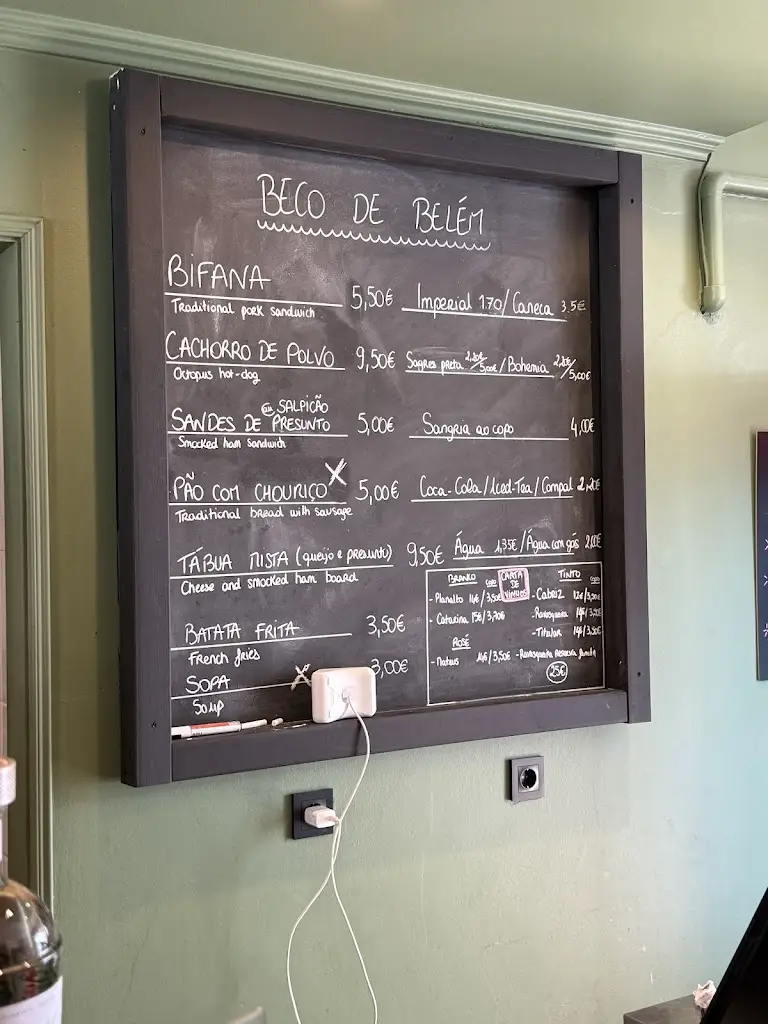 BECO DE BELÉM
BIFANA 5,50€
Traditional pork sandwich
CACHORRO DE POLVO 9,50€
Octopus hot-dog
SANDES DE SALPICÃO
PRESUNTO 5,00€
Smocked ham sandwich
PÃO COM CHOURIÇO X 5,00€
Traditional bread with sausage
TÁBUA MISTA (queijo e presunto) 9,50€
Cheese and smocked ham board
BATATA FRITA 3,50€
French fries
SOPA X 3,00€
Soup
Imperial 1.70/Caneca 3.5€
Sagres preta 2,20€/5,00€ / Bohemia 2,20€/5,00€
Sangria ao copo 4,00€
Coca-Cola/Iced-Tea/Compal 2,20€
Água 1,35€/Água com gás 2,00€
CARTA DE VINHOS
BRANCO COPO
- Planalto 14€/3,50€
- Catarina 15€/3,70€
ROSÉ
- Mateus 14€/3,50€
TINTO COPO
- Cabriz 12€/3,50€
- Ramosqueira 14€/3,50€
- Titular 14€/3,50€
25€